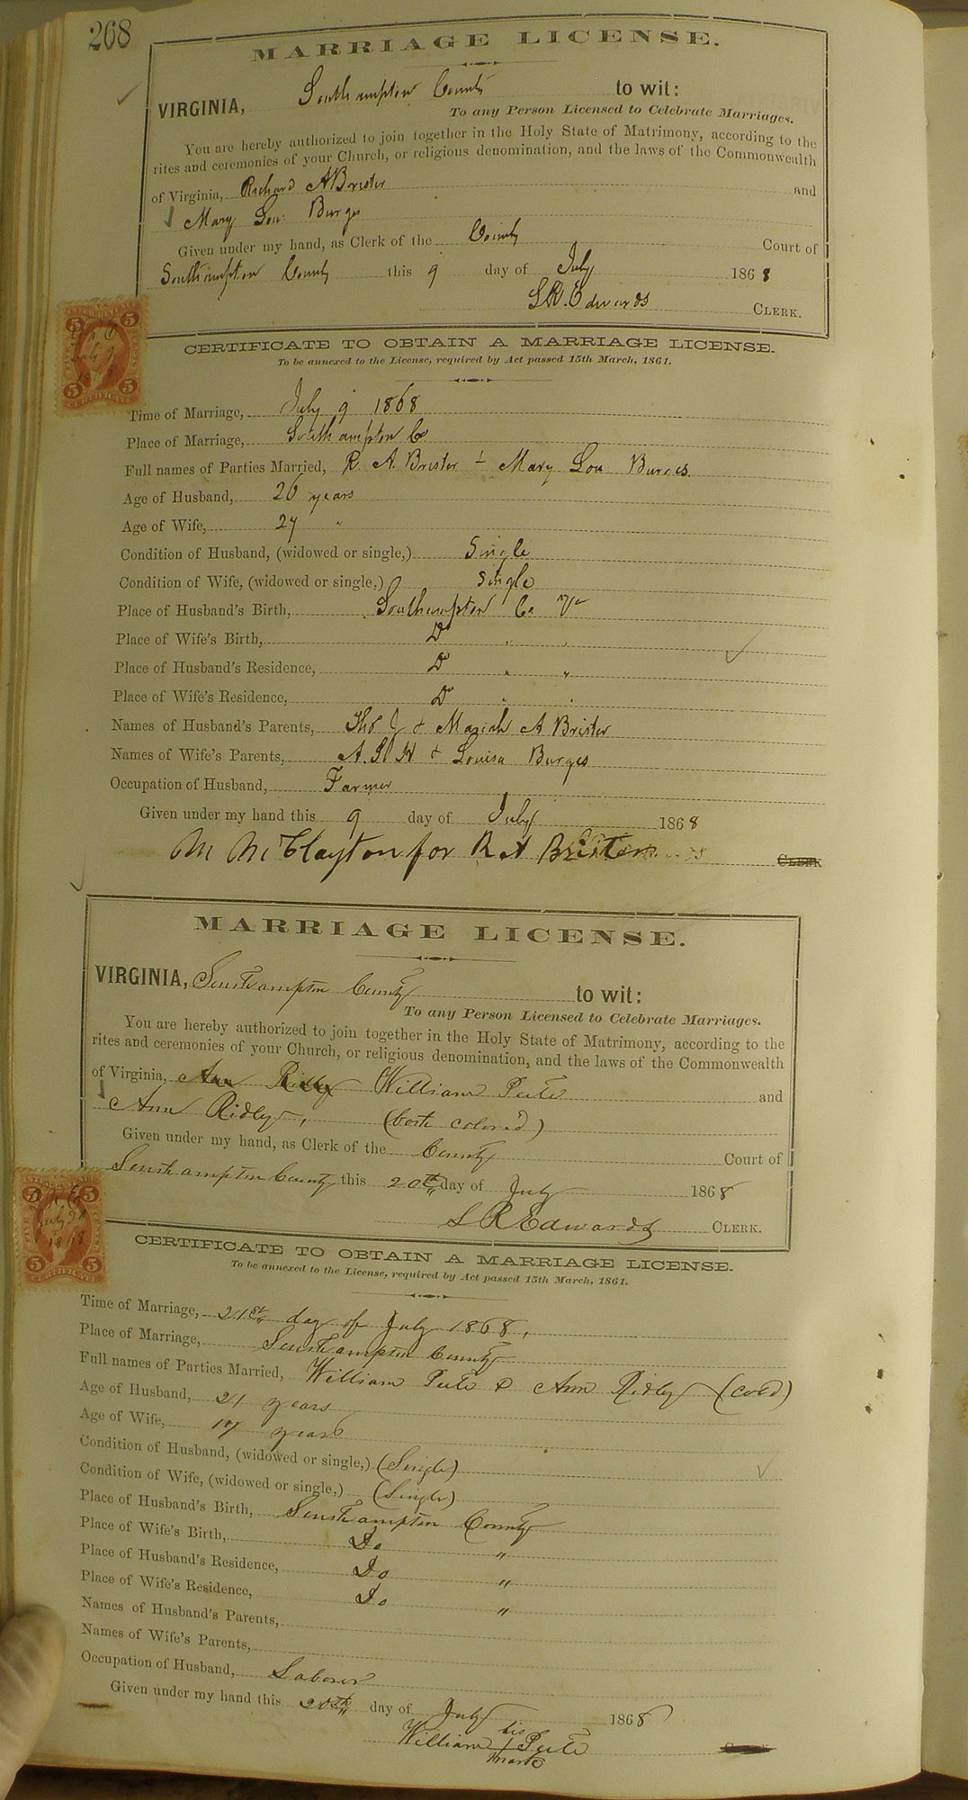 268
MARRIAGE LICENSE.
VIRGINIA, Southampton County to wit:
To any Person Licensed to Celebrate Marriages.
You are hereby authorized to join together in the Holy State of Matrimony, according to the
rites and ceremonies of your Church, or religious denomination, and the laws of the Commonwealth
of Virginia, Richard A Brister and
Mary Lou Burges
Given under my hand, as Clerk of the County Court of
Southampton County this 9 day of July 1868
L R. Edwards CLERK.
CERTIFICATE TO OBTAIN A MARRIAGE LICENSE.
To be annexed to the License, required by Act passed 15th March, 1861.
Time of Marriage, July 9 1868
Place of Marriage, Southampton Co
Full names of Parties Married, R. A. Brister + Mary Lou Burges.
Age of Husband, 26 years
Age of Wife, 27 "
Condition of Husband, (widowed or single,) Single
Condition of Wife, (widowed or single,) Single
Place of Husband's Birth, Southampton Co Va
Place of Wife's Birth, Do " "
Place of Husband's Residence, Do " "
Place of Wife's Residence, Do " "
Names of Husband's Parents, Tho J + Mariah A Brister
Names of Wife's Parents, A. & Louisa Burges
Occupation of Husband, Farmer
Given under my hand this 9 day of July 1868
M McClayton for R A Brister CLERK
MARRIAGE LICENSE.
VIRGINIA, Southampton County to wit:
To any Person Licensed to Celebrate Marriages.
You are hereby authorized to join together in the Holy State of Matrimony, according to the
rites and ceremonies of your Church, or religious denomination, and the laws of the Commonwealth
of Virginia, Ann Ridley William Peete and
Ann Ridley, (both colored)
Given under my hand, as Clerk of the County Court of
Southampton County this 20th day of July 1868
L R Edwards CLERK.
CERTIFICATE TO OBTAIN A MARRIAGE LICENSE.
To be annexed to the License, required by Act passed 15th March, 1861.
Time of Marriage, 21st day of July 1868,
Place of Marriage, Southampton County
Full names of Parties Married, William Peete & Ann Ridley (cold)
Age of Husband, 21 years
Age of Wife, 17 years
Condition of Husband, (widowed or single,) (Single)
Condition of Wife, (widowed or single,) (Single)
Place of Husband's Birth, Southampton County
Place of Wife's Birth, Do "
Place of Husband's Residence, Do "
Place of Wife's Residence, Do "
Names of Husband's Parents,
Names of Wife's Parents,
Occupation of Husband, Laborer
Given under my hand this 20th day of July 1868
his
William Peete
mark